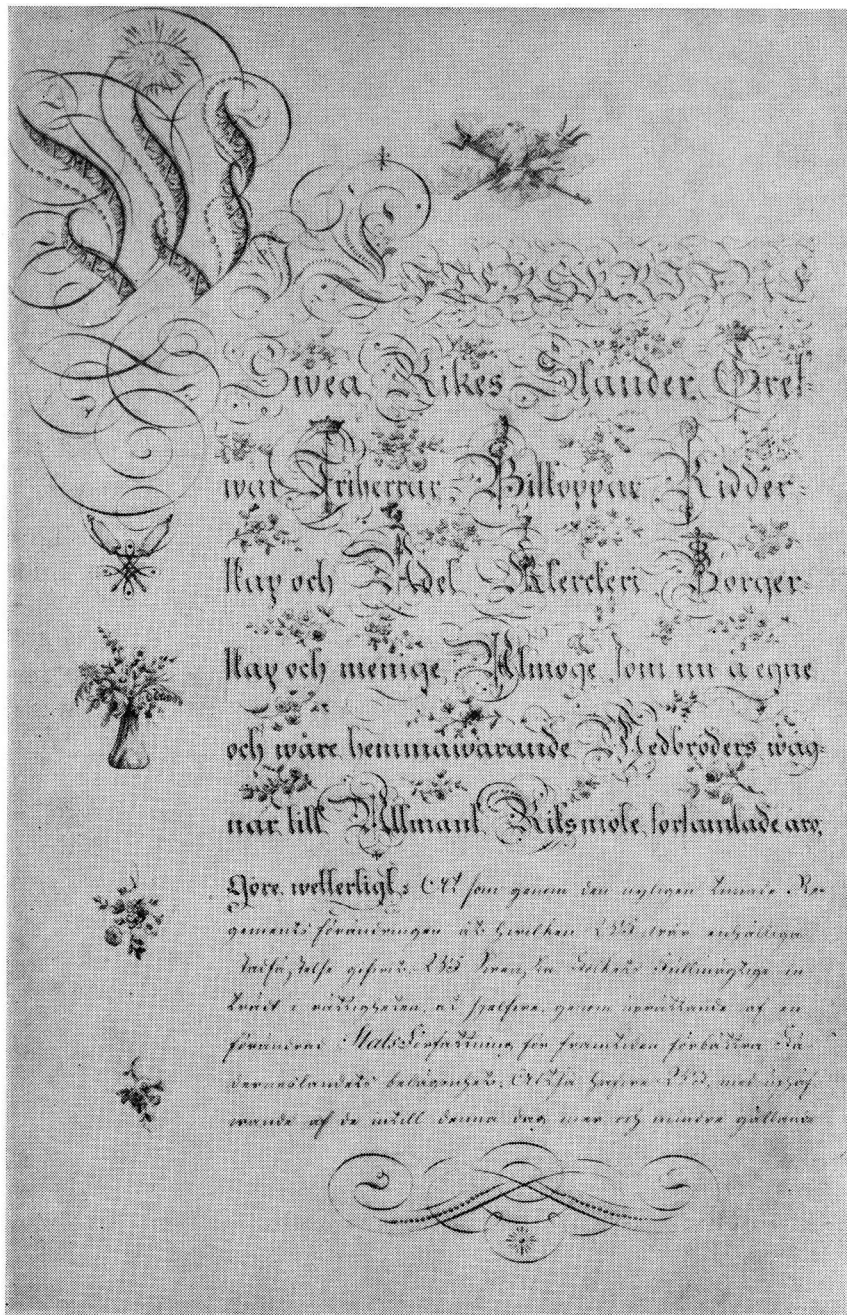 WI EFTERSKREFNE
Swea Rikes Ständer, Gref-
war, Friherrar, Biskoppar, Ridder-
skap och Adel, Klerckeri, Borger-
skap och menige Almoge, som nu å egne
och wåre hemmawarande Medbröders wäg-
nar till Allmänt Riksmöte församlade äro,
Göre wetterligt: At som genom den nyligen timade Re-
gements förändringen åt hwilken Wi wår enhälliga
Folkets Fullmägtige in
trädt i rättigheten, at sjelfwe, genom uprättande af en
förändrad StatsFörfattning för framtiden förbättra Fä
derneslandets belägenhet; Altså hafwe Wi, med uphäf
wande af de intill denna dag mer och mindre gällande